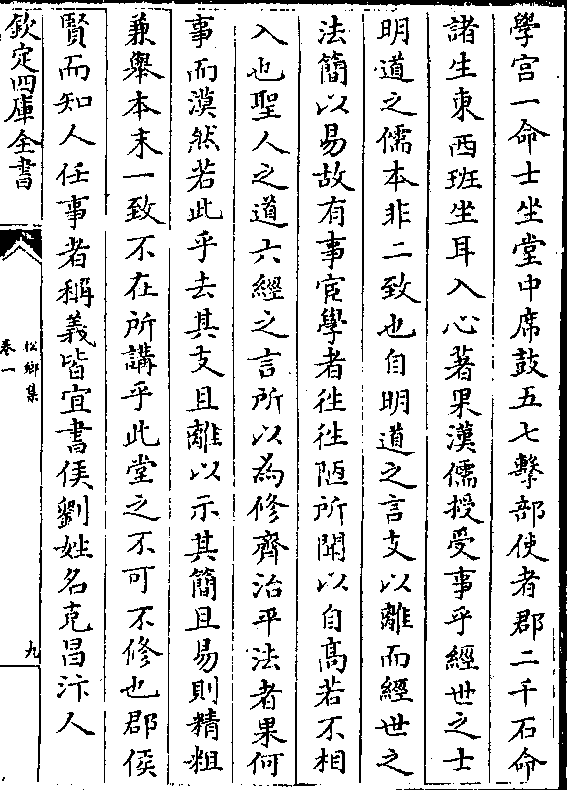 學宫一命士坐堂中席鼓五七擊部使者郡二千石命
諸生東西班坐耳入心著果漢儒授受事乎經世之士
明道之儒本非二致也自明道之言支以離而經世之
法簡以易故有事宦學者徃徃陋所聞以自高若不相
入也聖人之道六經之言所以為修齊治平法者果何
事而漠然若此乎去其支且離以示其簡且易則精粗
兼舉本末一致不在所講乎此堂之不可不修也郡侯
賢而知人任事者稱義皆宜書侯劉姓名克昌汴人
欽定四庫全書
松鄉集
卷一
九